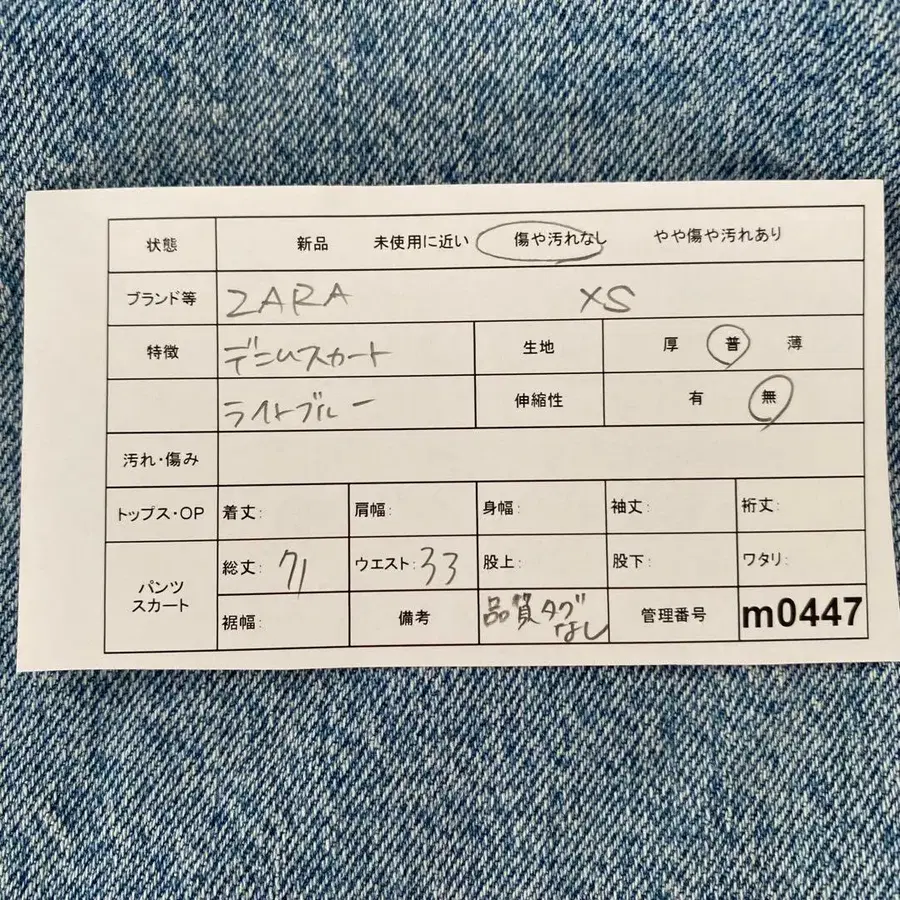 状態 新品 未使用に近い 傷や汚れなし やや傷や汚れあり
ブランド等 ZARA XS
特徴 デニムスカート 生地 厚 普 薄
ライトブルー 伸縮性 有 無
汚れ・傷み
トップス・OP 着丈: 肩幅: 身幅: 袖丈: 裄丈:
パンツ スカート 総丈: 71 ウエスト: 33 股上: 股下: ワタリ:
裾幅: 備考 品質タグなし 管理番号 m0447